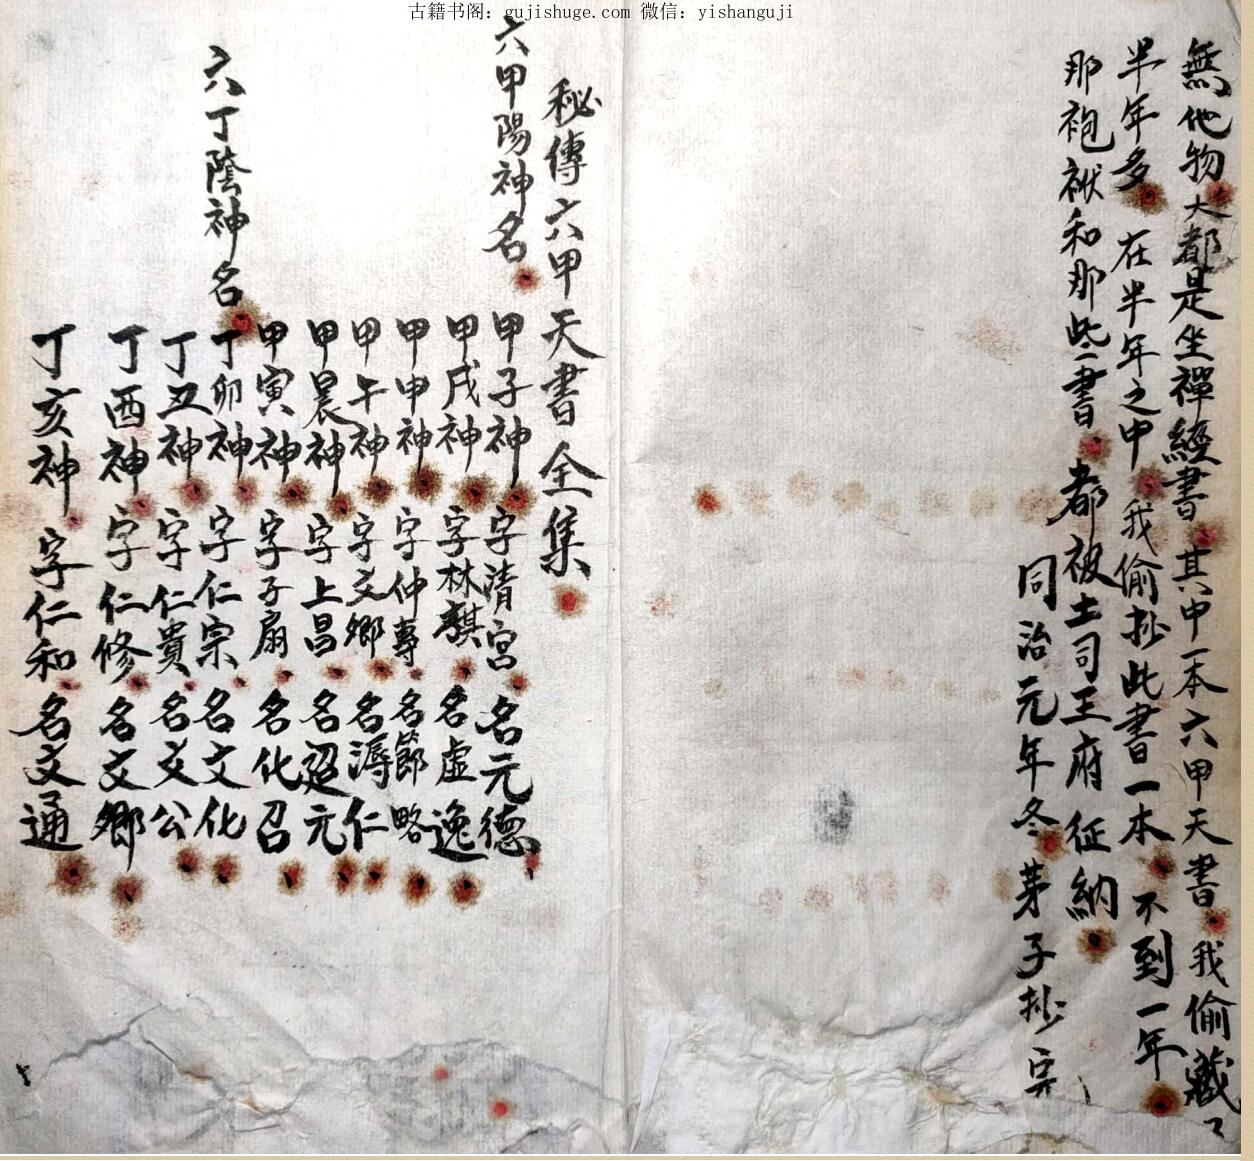 古籍书阁：gujishuge.com 微信：yishanguji
無他物大都是坐禪經書其中一本六甲天書我偷藏了
半年多在半年之中我偷抄此書一本不到一年
那袍袱和那些書都被土司王府征納
同治元年冬茅子抄完
秘傳六甲天書全集
六甲陽神名
甲子神字清宮名元德
甲戌神字林騏名虛逸
甲申神字仲專名節略
甲午神字文鄉名溽仁
甲晨神字上昌名迢元
甲寅神字子扇名化召
六丁陰神名
丁卯神字仁宗名文化
丁丑神字仁貴名文公
丁酉神字仁修名文鄉
丁亥神字仁和名文通